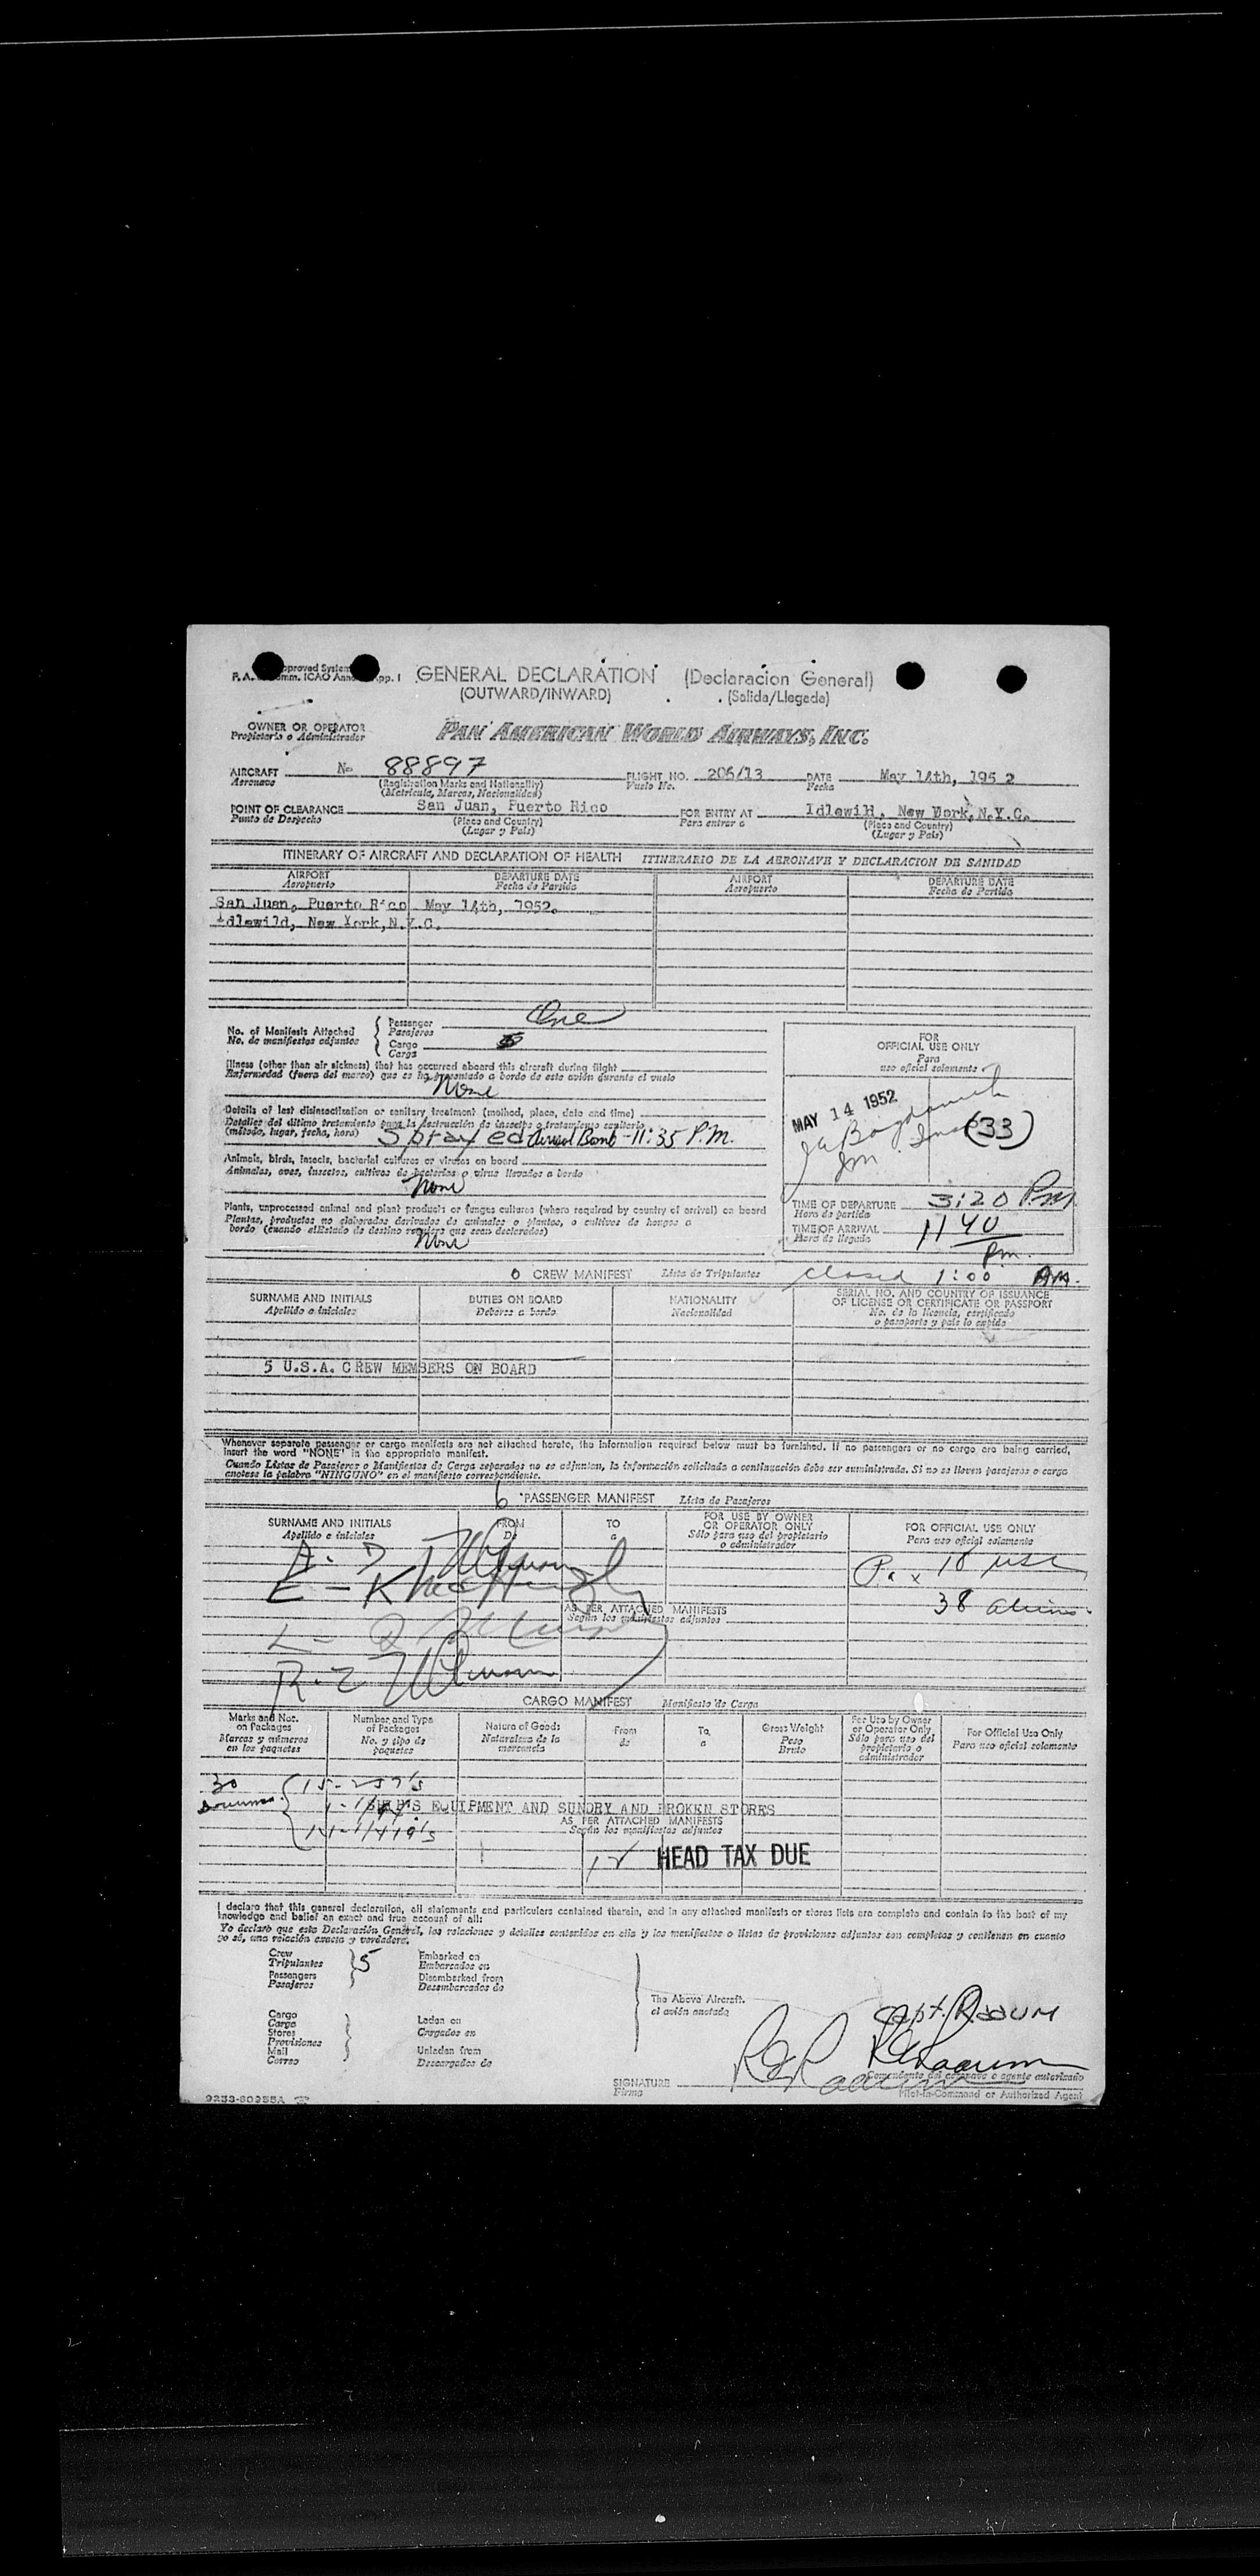 GENERAL DECLARATION (Declaracion General)
(OUTWARD/INWARD) (Salida/Llegada)
OWNER OR OPERATOR
Propietario o Administrador
PAN AMERICAN WORLD AIRWAYS, INC.
AIRCRAFT No 88897 FLIGHT NO. 206/13 DATE May 14th, 1952
Aeronave (Registration Marks and Nationality) Vuelo No. Fecha
(Matricula, Marcas, Nacionalidad)
POINT OF CLEARANCE San Juan, Puerto Rico FOR ENTRY AT Idlewild, New York, N.Y.C.
Punto de Despacho (Place and Country) Para entrar a (Place and Country)
(Lugar y País) (Lugar y País)
ITINERARY OF AIRCRAFT AND DECLARATION OF HEALTH ITINERARIO DE LA AERONAVE Y DECLARACION DE SANIDAD
AIRPORT DEPARTURE DATE AIRPORT DEPARTURE DATE
Aeropuerto Fecha de Partida Aeropuerto Fecha de Partida
San Juan, Puerto Rico May 14th, 1952.
Idlewild, New York, N.Y.C.
No. of Manifests Attached Passenger One
No. de manifiestos adjuntos Pasajeros
Cargo
Carga
Illness (other than air sickness) that has occurred aboard this aircraft during flight
Enfermedad (fuera del mareo) que se ha presentado a bordo de este avión durante el vuelo
None
Details of last disinsectisation or sanitary treatment (method, place, date and time)
Detalles del último tratamiento para la destrucción de insectos o tratamiento sanitario
(método, lugar, fecha, hora) Sprayed Aerosol Bomb - 11:35 P.M.
Animals, birds, insects, bacterial cultures or viruses on board
Animales, aves, insectos, cultivos de bacterias o virus llevados a bordo
None
Plants, unprocessed animal and plant products or fungus cultures (where required by country of arrival) on board
Plantas, productos no elaborados derivados de animales o plantas, o cultivos de hongos a
bordo (cuando el Estado de destino requiera que sean declarados)
None
FOR
OFFICIAL USE ONLY
Para
uso oficial solamente
MAY 14 1952
(33)
TIME OF DEPARTURE 3:20 P.M.
Hora de partida
TIME OF ARRIVAL 11 40
Hora de llegada
P.m.
closed 1:00 AM.
CREW MANIFEST Lista de Tripulantes
SURNAME AND INITIALS DUTIES ON BOARD NATIONALITY SERIAL NO. AND COUNTRY OF ISSUANCE
OF LICENSE OR CERTIFICATE OR PASSPORT
Apellido e iniciales Deberes a bordo Nacionalidad No. de la licencia, certificado
o pasaporte y país lo expide
5 U.S.A. CREW MEMBERS ON BOARD
Whenever separate passenger or cargo manifests are not attached hereto, the information required below must be furnished. If no passengers or no cargo are being carried,
insert the word "NONE" in the appropriate manifest.
Cuando Listas de Pasajeros o Manifiestos de Carga separados no se adjuntan, la información solicitada a continuación debe ser suministrada. Si no se llevan pasajeros o carga
anotese la palabra "NINGUNO" en el manifiesto correspondiente.
PASSENGER MANIFEST Lista de Pasajeros
SURNAME AND INITIALS FROM TO FOR USE BY OWNER
OR OPERATOR ONLY FOR OFFICIAL USE ONLY
Apellido e iniciales De a Sólo para uso del propietario
o administrador Para uso oficial solamente
18 USC
38 aliens
AS PER ATTACHED MANIFESTS
Según los manifiestos adjuntos
CARGO MANIFEST Manifiesto de Carga
Marks and Nos.
on Packages
Marcas y números
en los paquetes
Number and Type
of Packages
No. y tipo de
paquetes
Nature of Goods
Naturaleza de la
mercancía
From
de
To
a
Gross Weight
Peso
Bruto
For Use by Owner
or Operator Only
Sólo para uso del
propietario o
administrador
For Official Use Only
Para uso oficial solamente
30
SHIP'S EQUIPMENT AND SUNDRY AND BROKEN STORES
AS PER ATTACHED MANIFESTS
Según los manifiestos adjuntos
HEAD TAX DUE
I declare that this general declaration, all statements and particulars contained therein, and in any attached manifests or stores lists are complete and contain to the best of my
knowledge and belief an exact and true account of all:
Yo declaro que esta Declaración General, las relaciones y detalles contenidos en ella y los manifiestos o listas de provisiones adjuntos son completas y contienen en cuanto
yo sé, una relación exacta y verdadera.
Crew 5 Embarked on
Tripulantes Embarcados en
Passengers Disembarked from
Pasajeros Desembarcados de
The Above Aircraft.
el avión anotado
Cargo
Carga Laden on
Stores Cargados en
Provisiones
Mail Unladen from
Correo Descargados de
Capt. Raaum
SIGNATURE
Firma
Comandante del aeronave o agente autorizado
Pilot-in-Command or Authorized Agent